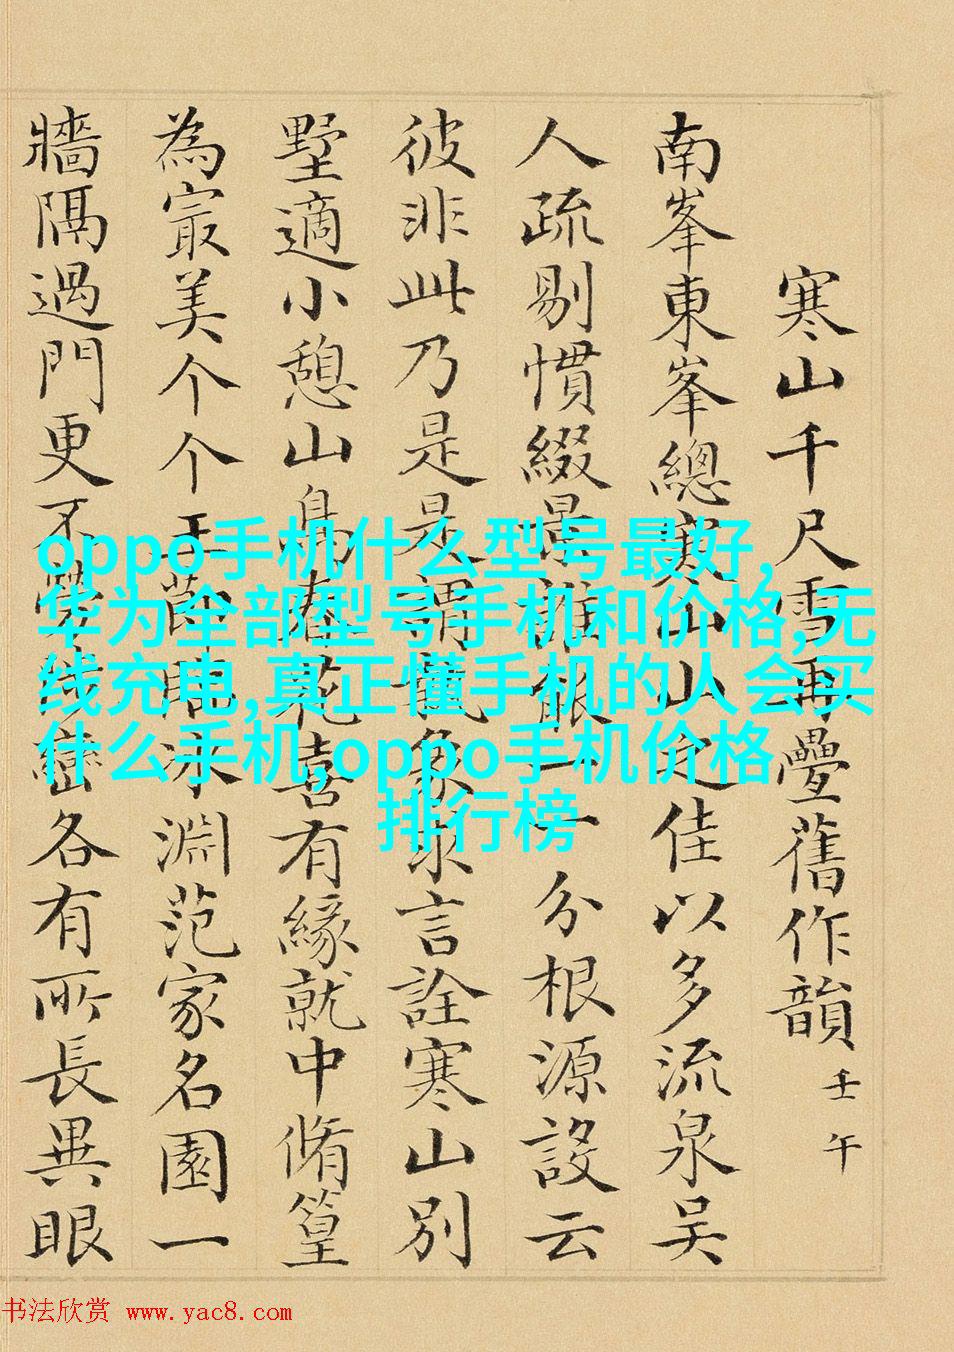 寒山千尺雪再疊舊作韻 壬午
南峯東峯總寒山山之佳以多流泉吴
人疏剔慣綴景誰能一一分根源設云
彼非此乃是是謂象求言詮寒山別
墅適小憩山鳥春花喜有緣就中脩篁
為寂美个个玉莭臨冰淵范家名園一
牆隔過門更不巒各有所長異眼
oppo手机什么型号最好,
华为全部型号手机和价格,无
线充电,真正懂手机的人会买
什么手机,oppo手机价格
排行榜
书法欣赏 www.yac8.com